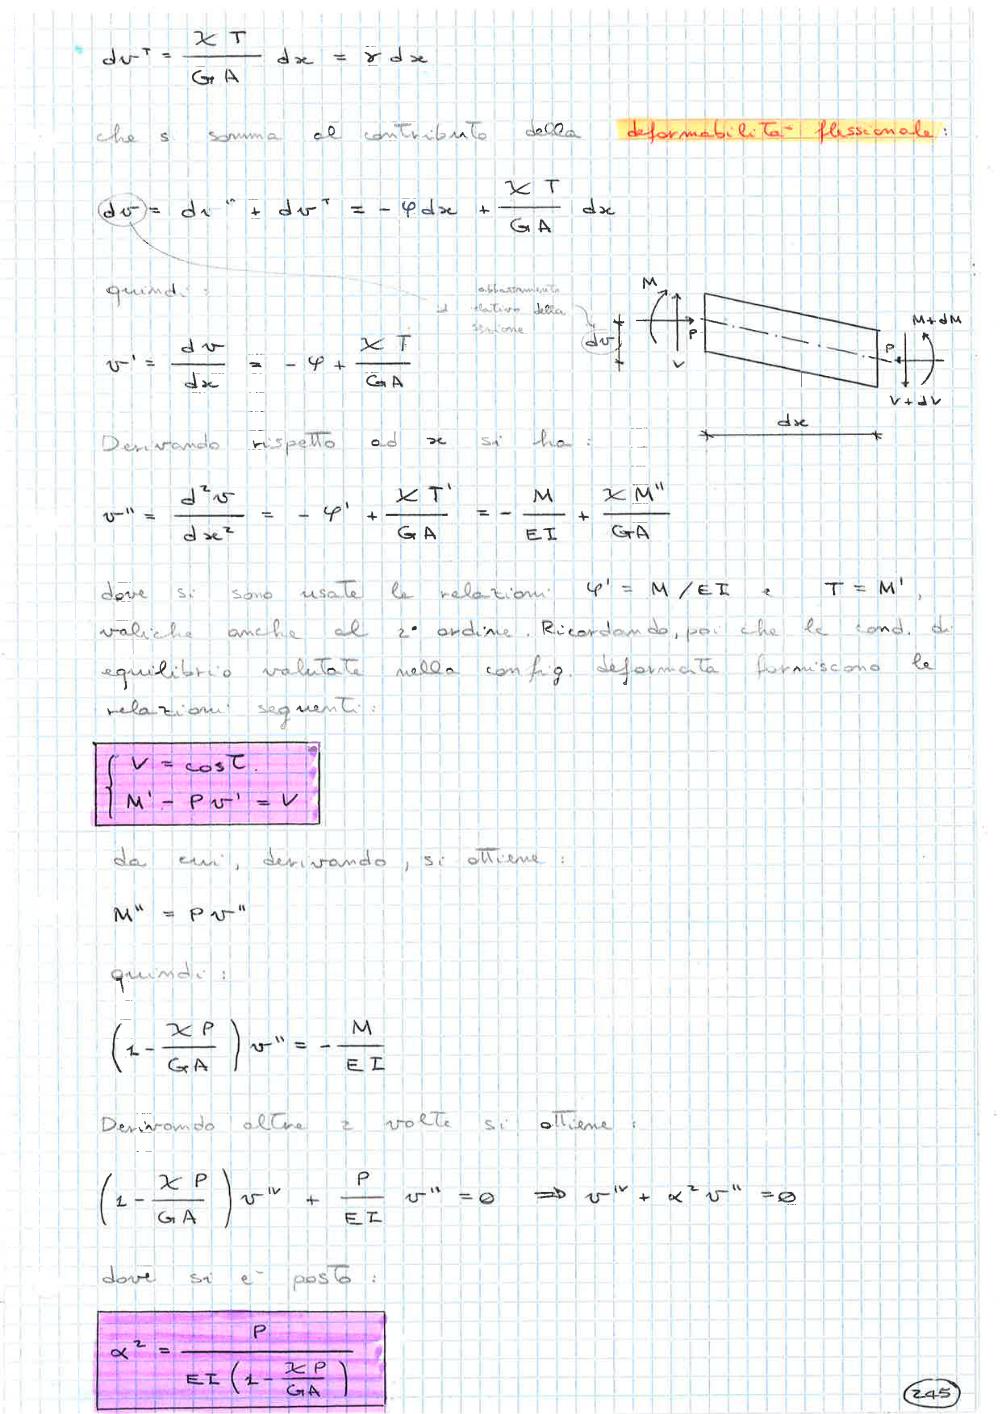 dv^T = χ T / GA dx = γ dx
che si somma al contributo della deformabilità flessionale:
dv = dv^M + dv^T = - φ dx + χ T / GA dx
quindi:
abbassamento
relativo della
sezione
dv
M
P
V
M + dM
P
V + dV
dx
v' = dv / dx = - φ + χ T / GA
Derivando rispetto ad x si ha:
v'' = d²v / dx² = - φ' + χ T' / GA = - M / EI + χ M'' / GA
dove si sono usate le relazioni φ' = M / EI e T = M',
valide anche al 2° ordine. Ricordando, poi che le cond. di
equilibrio valutate nella config. deformata forniscono le
relazioni seguenti:
V = cost.
M' - P v' = V
da cui, derivando, si ottiene:
M'' = P v''
quindi:
(1 - χ P / GA) v'' = - M / EI
Derivando altre 2 volte si ottiene:
(1 - χ P / GA) v^IV + P / EI v'' = 0 ⇒ v^IV + α² v'' = 0
dove si è posto:
α² = P / EI (1 - χ P / GA)
245